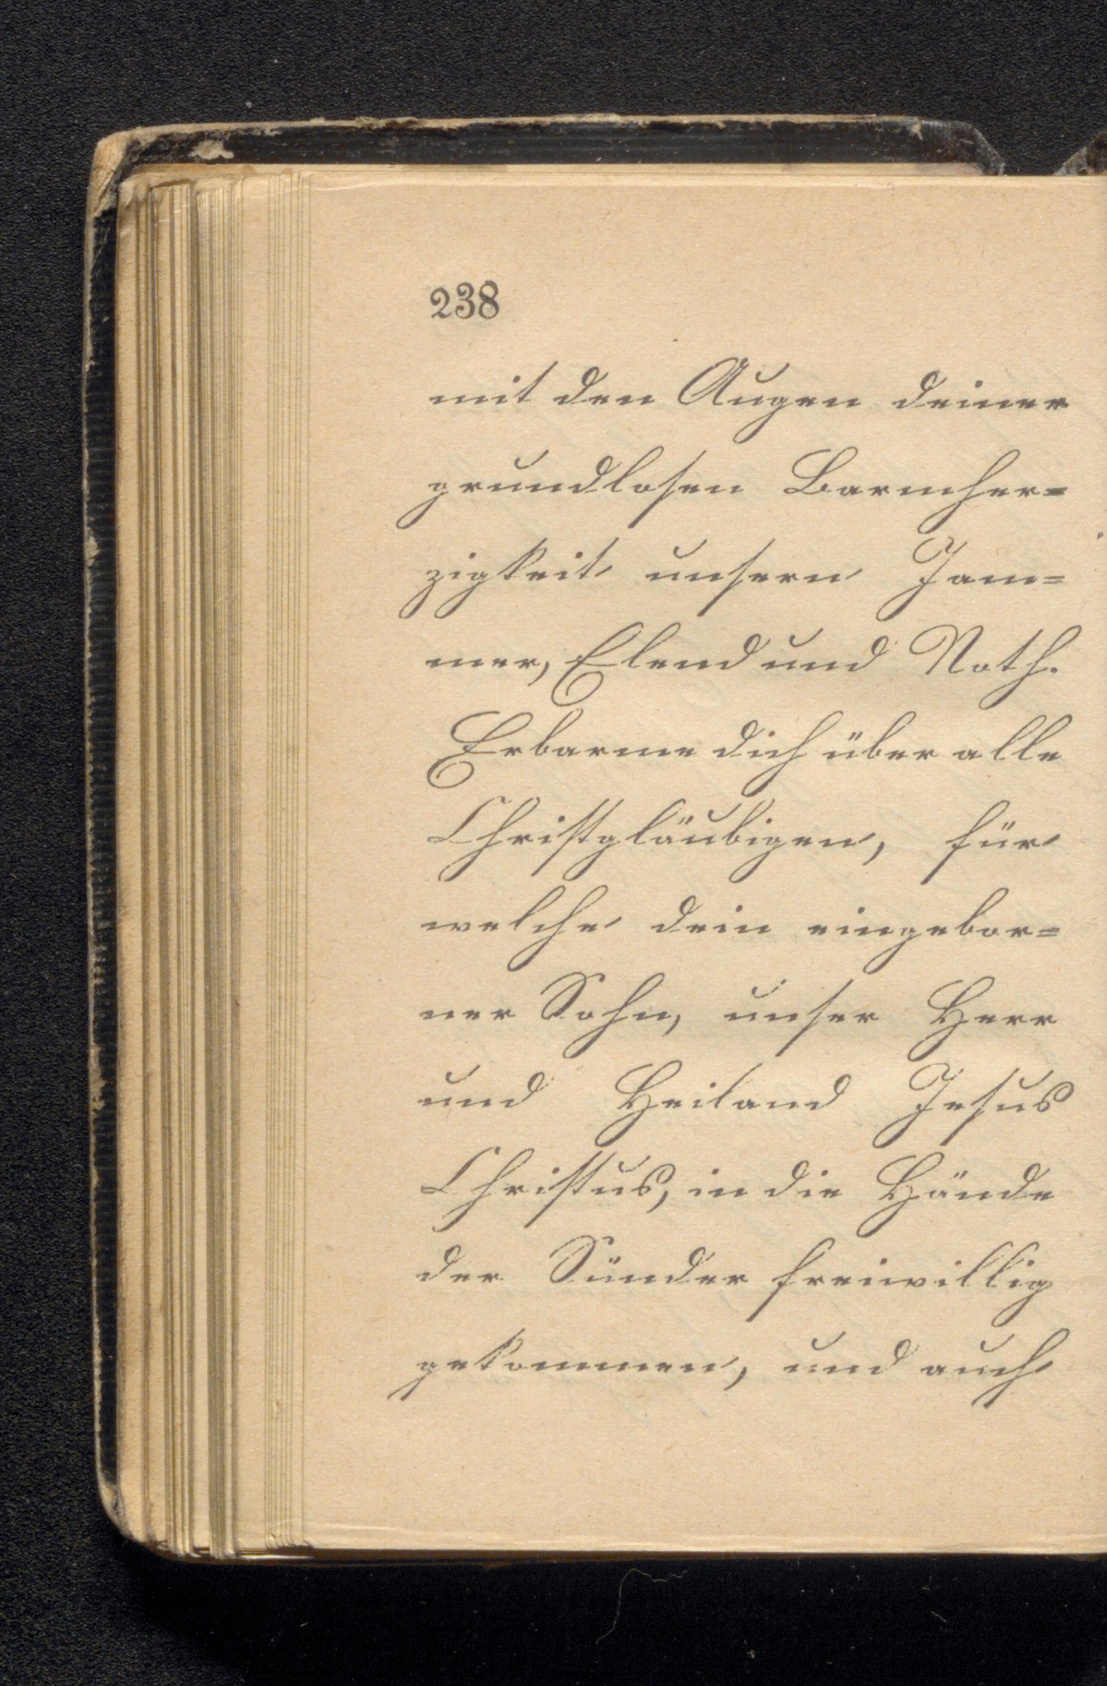 238
mit den Augen deiner
grundlosen Barmher=
zigkeit unsern Jam=
mer, Elend und Noth.
Erbarme dich über alle
Christgläubigen, für
welche dein eingebor=
ner Sohn, unser Herr
und Heiland Jesus
Christus, in die Hände
der Sünder freiwillig
gekommen, und auch